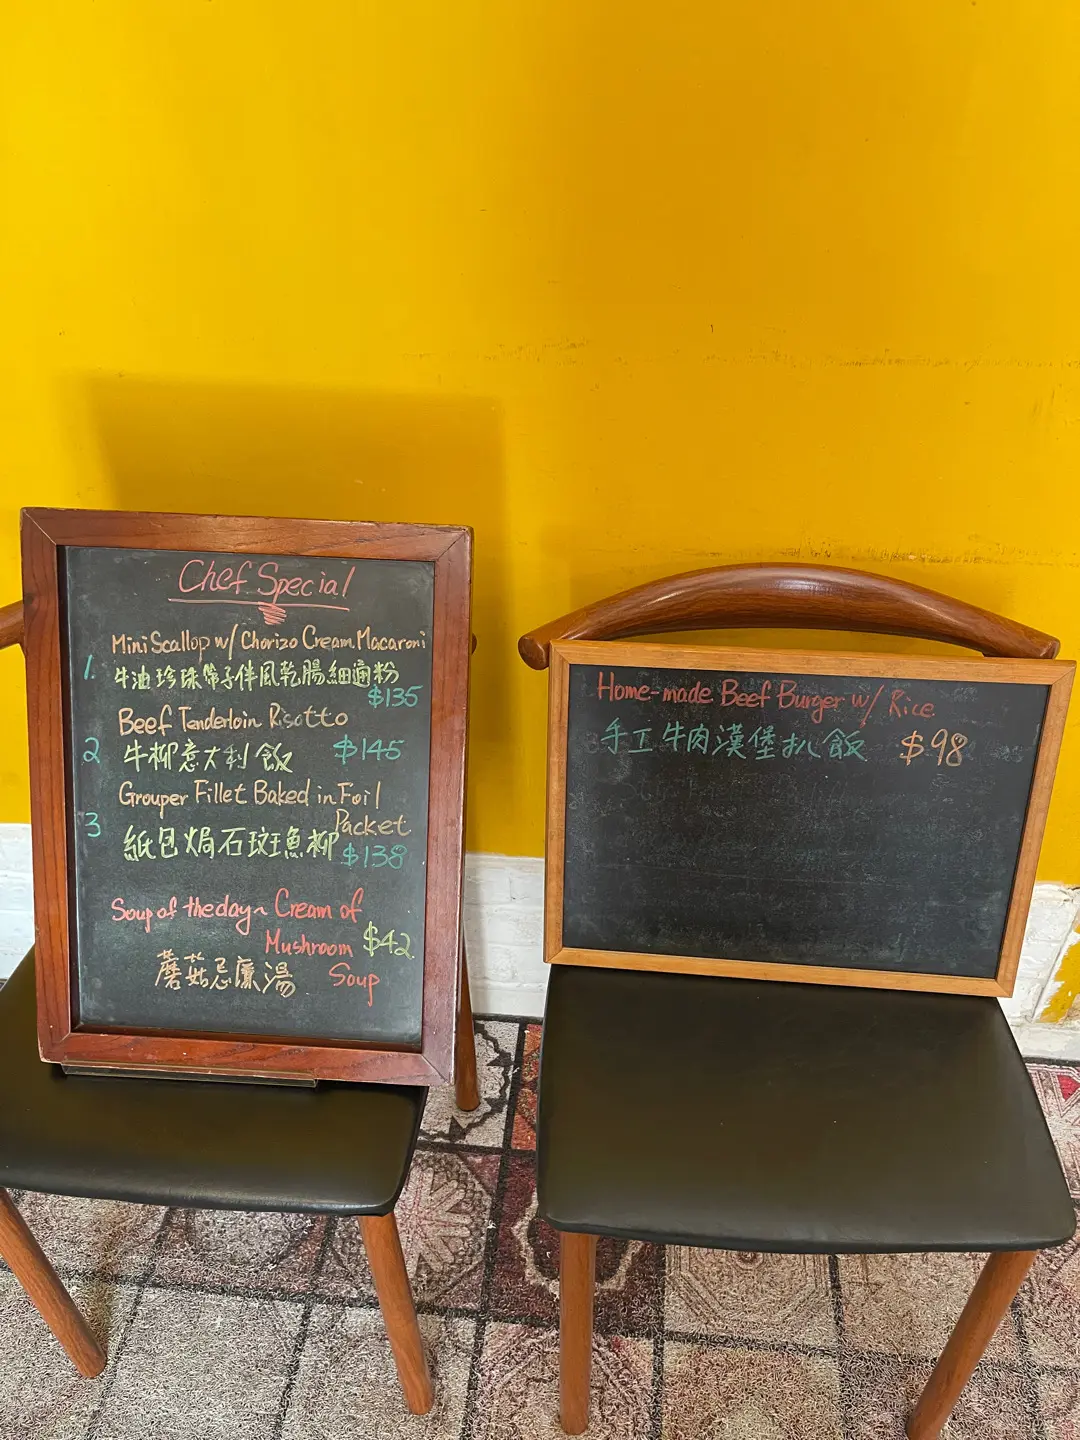 Chef Special
Mini Scallop w/ Chorizo Cream Macaroni
1. 牛油珍珠帶子伴風乾腸細通粉
$135
Beef Tenderloin Risotto
2 牛柳意大利飯 $145
Grouper Fillet Baked in Foil
Packet
3 紙包焗石斑魚柳 $138
Soup of the day~ Cream of
Mushroom $42
蘑菇忌廉湯 Soup
Home-made Beef Burger w/ Rice
手工牛肉漢堡扒飯 $98